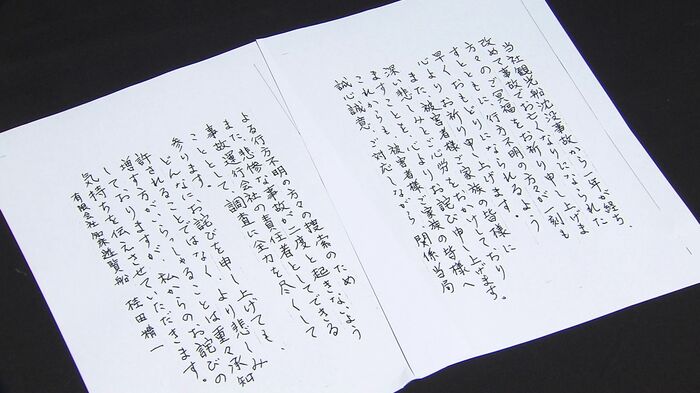 当社観光船沈没事故から一年が経ち、
改めて事故でお亡くなりになられた
方々のご冥福をお祈り申し上げま
すとともに、行方不明の方々が一刻も
早くお戻りになられるよう、
心よりお祈り申し上げます。
また、被害者様ご家族の皆様に
深い悲しみとご心労をおかけしており
ますことを、心よりお詫び申し上げます。
これからも、被害者様ご家族の皆様へ
誠心誠意、ご対応しながら、関係当局
よる行方不明の方々の捜索のため
また悲惨な事故が二度と起きないよう
事故運行会社の責任者としてできる
こととして、調査に全力を尽くして
参ります。
どんなにお詫びを申し上げても、
許されることではなく、より悲しみ
増す方がいらっしゃることは重々承知
しておりますが、私からのお詫びの
気持ちを伝えさせていただきます。
有限会社知床遊覧船 桂田精一